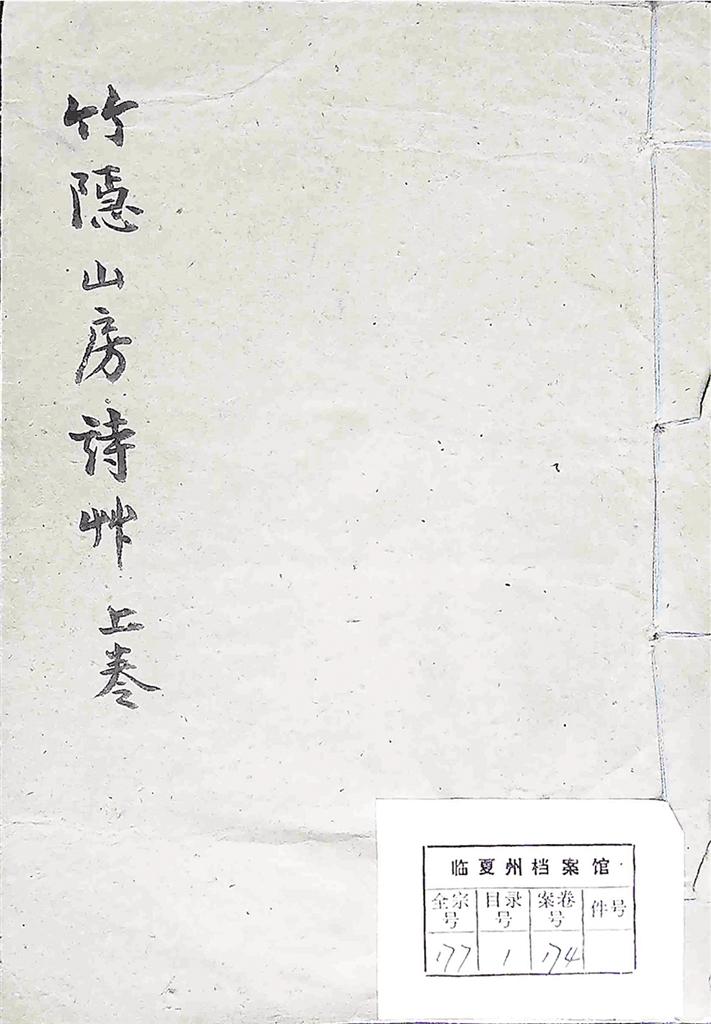 竹隱山房詩艸上卷
临夏州档案馆
全宗号 目录号 案卷号 件号
177 1 174